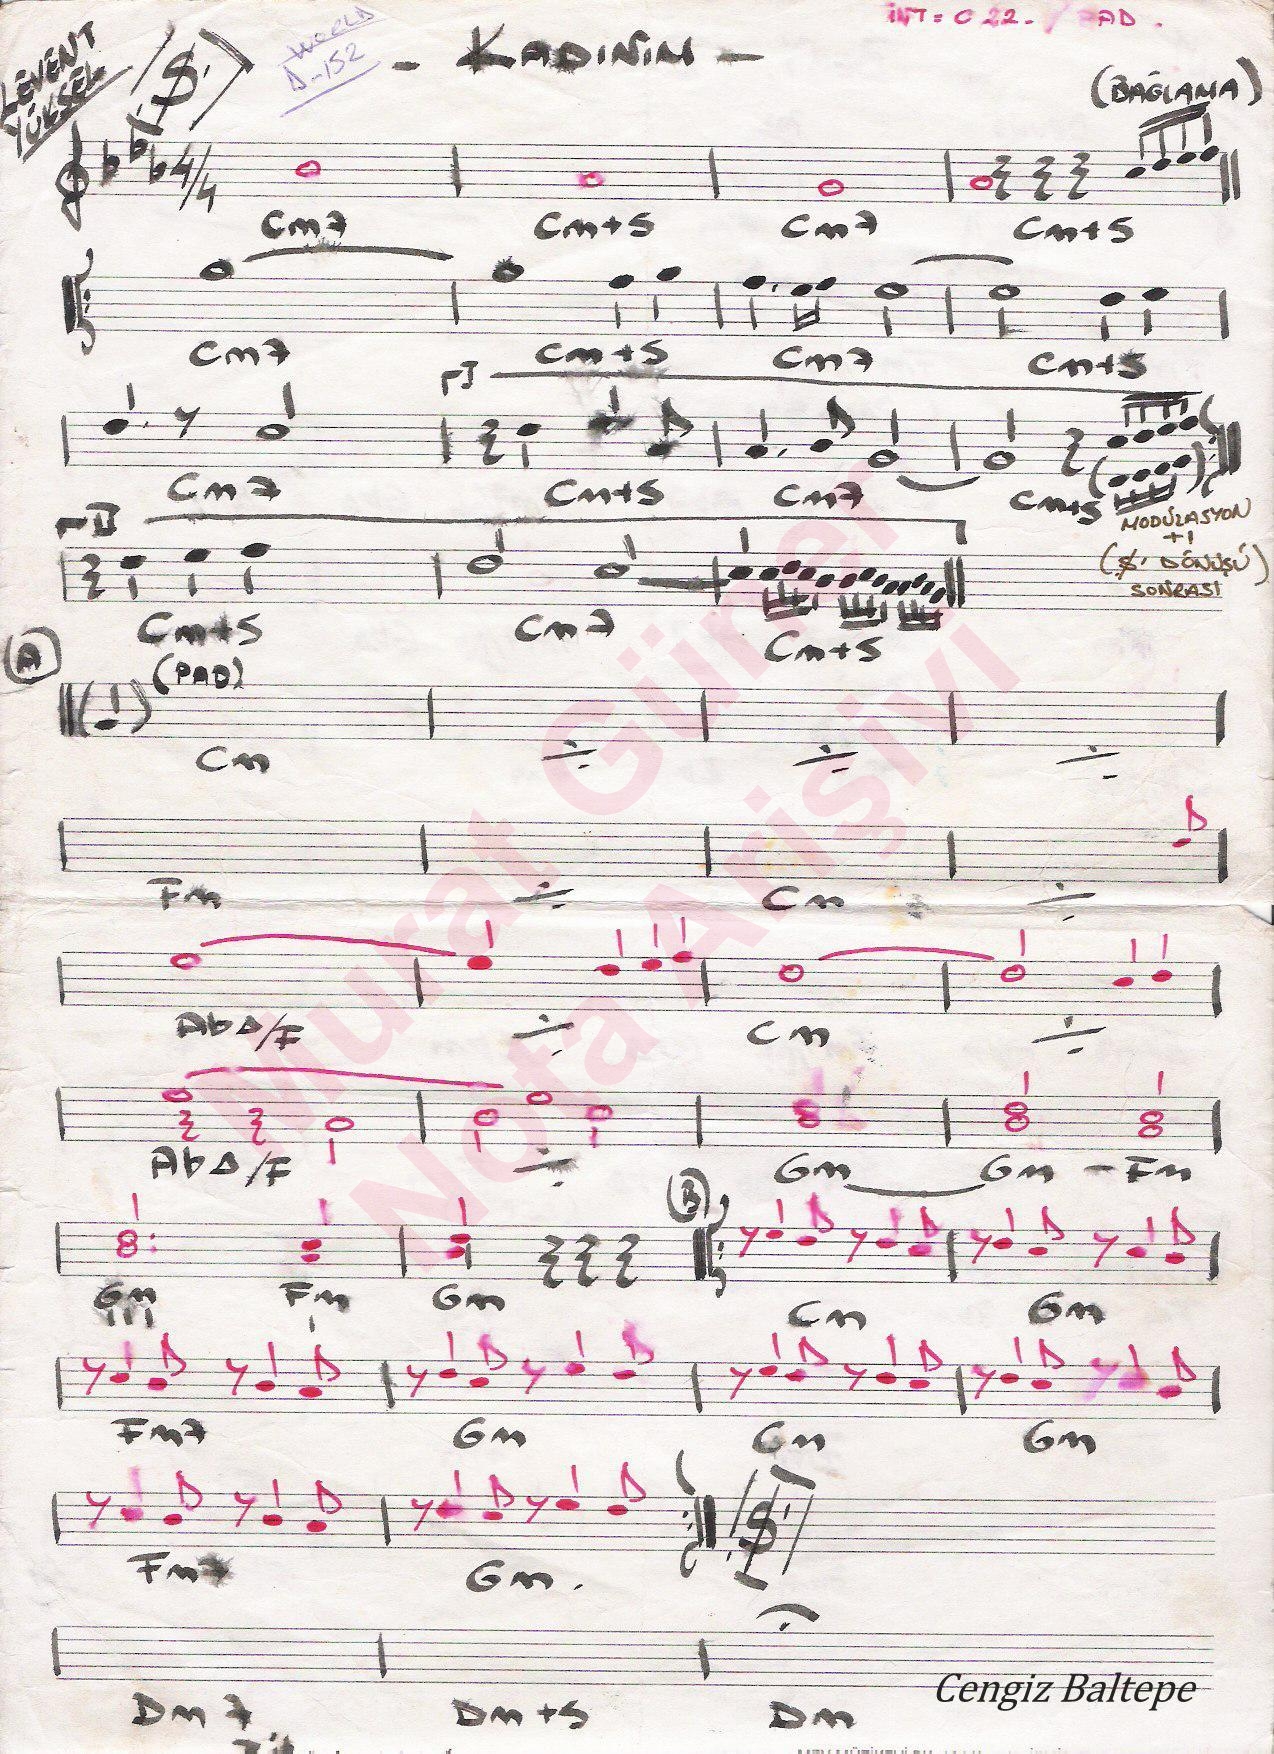 INT = C 22. / PAD.
LEVENT YÜKSEL
WORLD
D-152
- KADINIM -
(BAĞLAMA)
4/4
Cm7 Cm+5 Cm7 Cm+5
Cm7 Cm+5 Cm7 Cm+5
I
Cm7 Cm+5 Cm7 Cm+5
MODÜLASYON
+1
(𝄋 DÖNÜŞÜ)
SONRASI
II
Cm+5 Cm7 Cm+5
A
(PAD)
Cm
Fm Cm
Ab△/F Cm
Ab△/F Gm Gm - Fm
B
Gm Fm Gm Cm Gm
Fm7 Gm Cm Gm
Fm7 Gm.
Dm7 Dm+5 Dm
Cengiz Baltepe
Murat Güner
Nota Arişivi